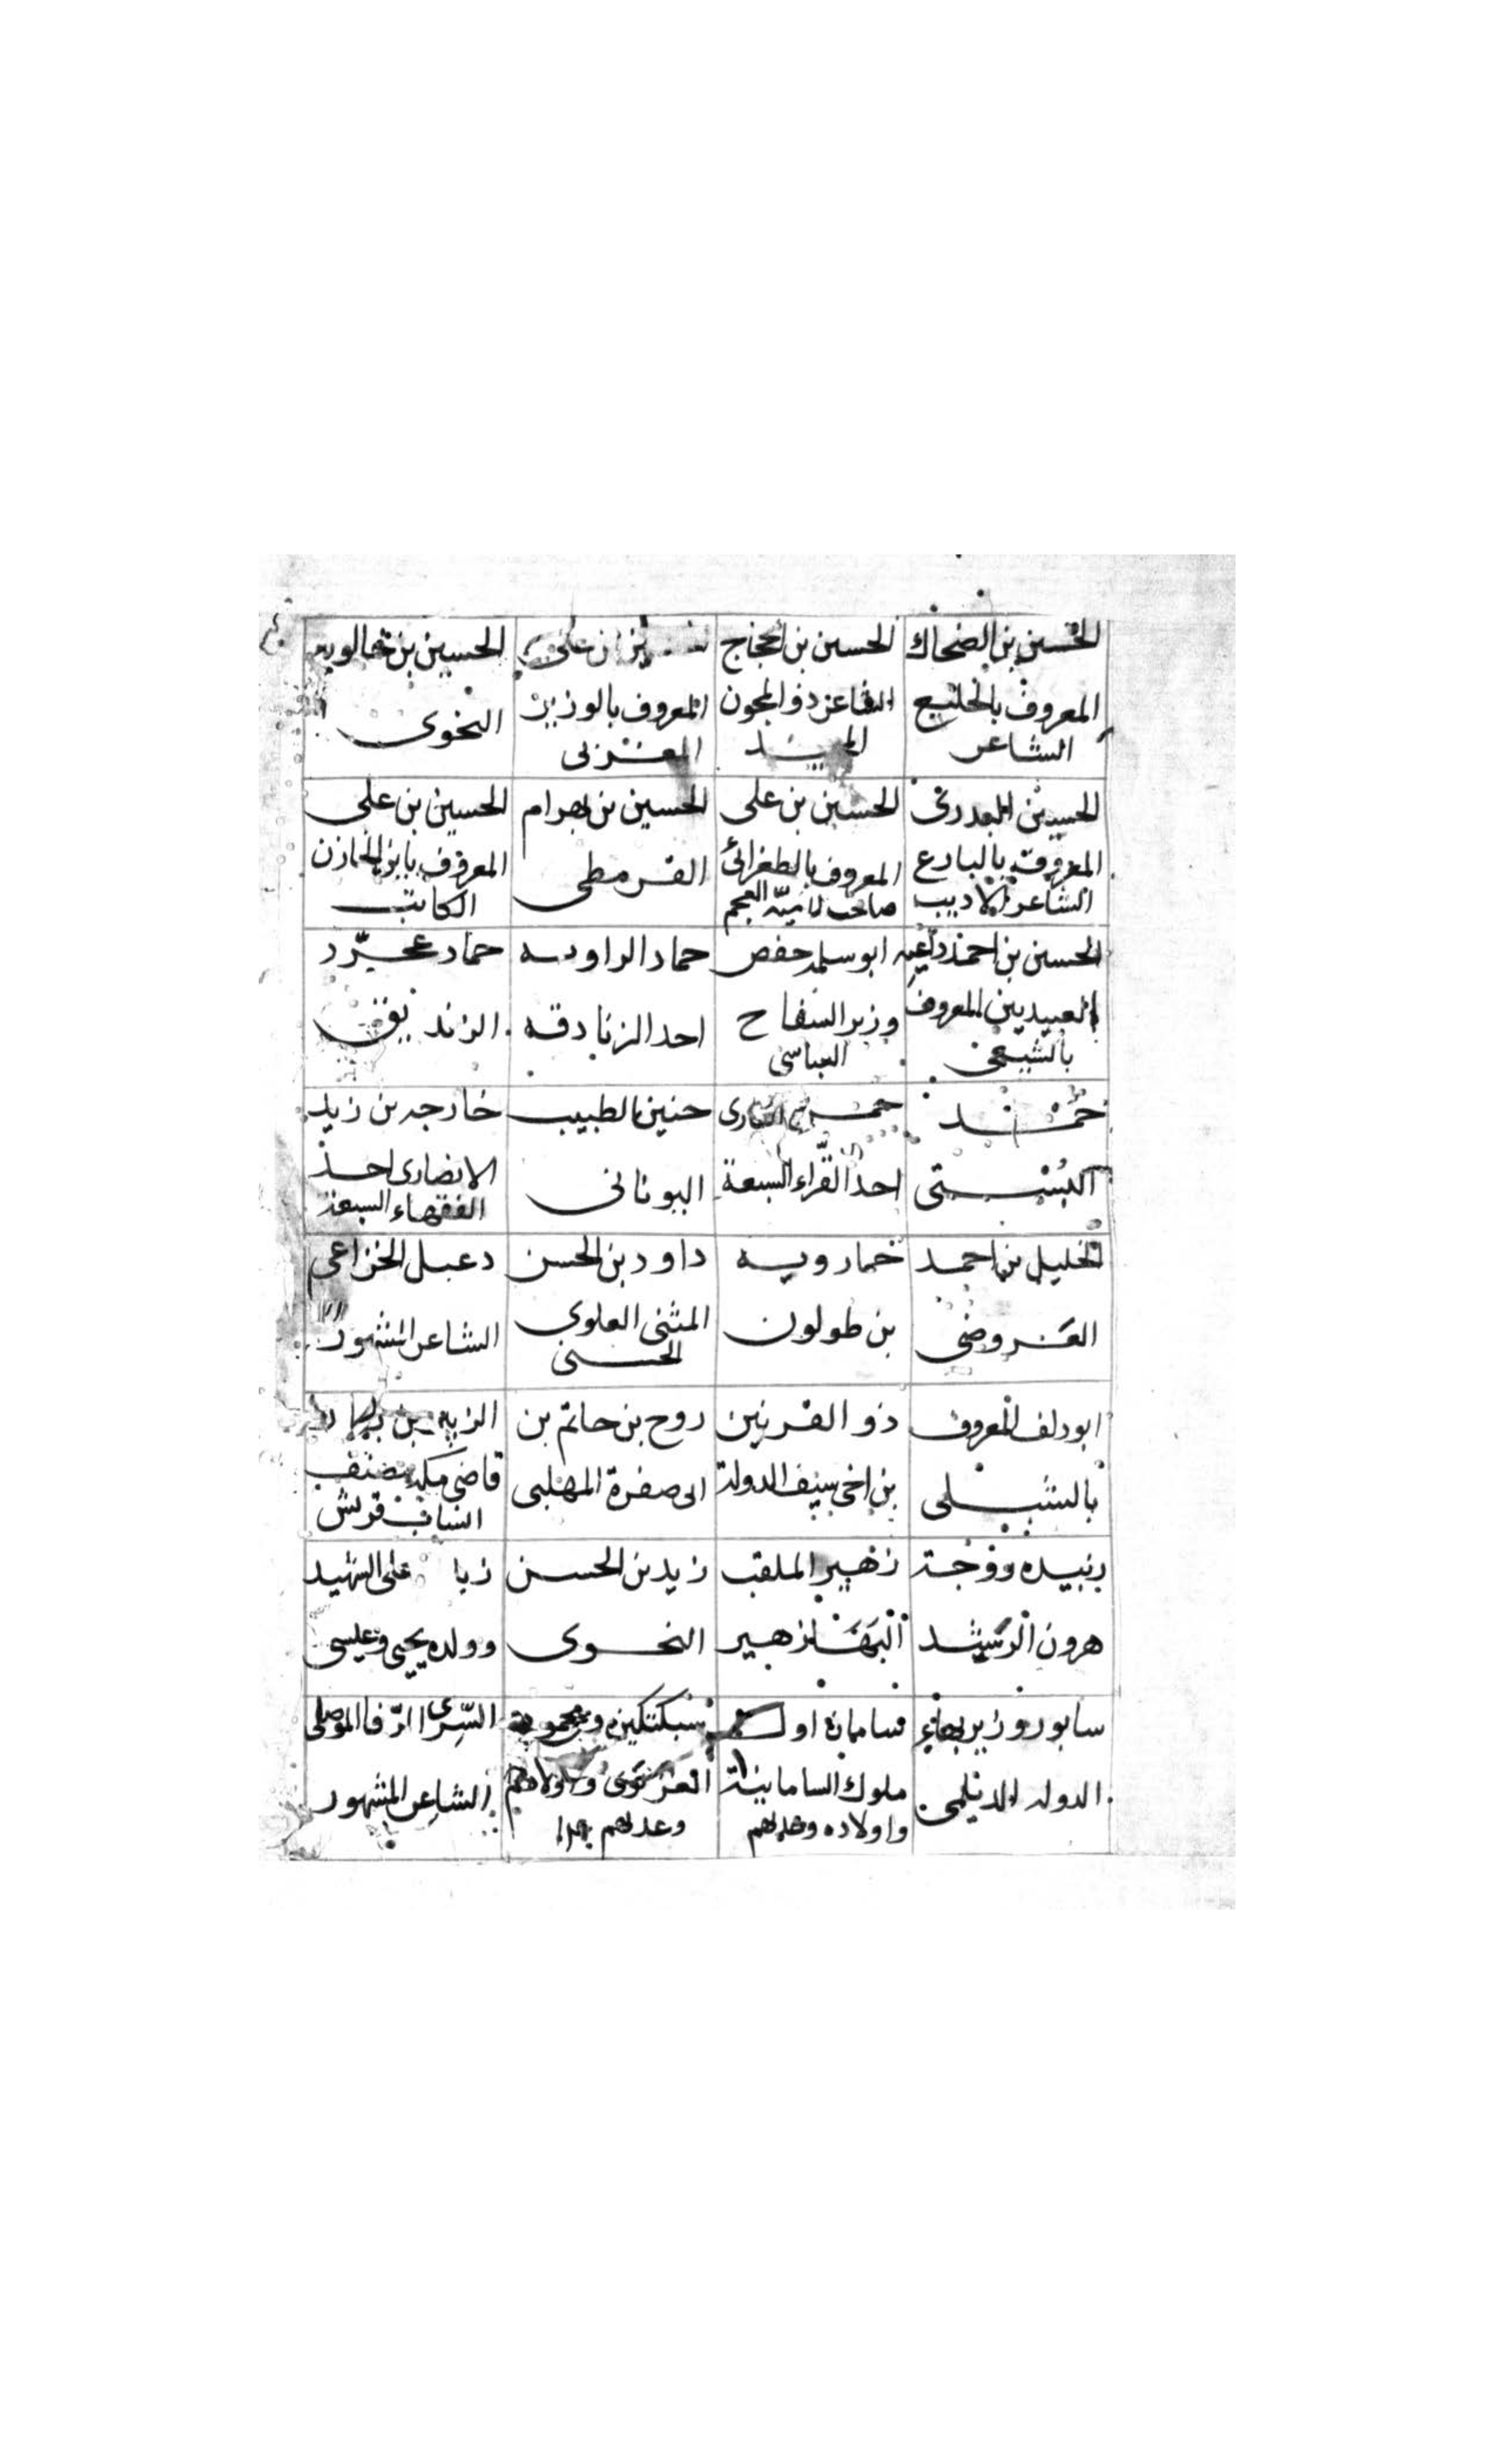 الحسين بن الضحاك
المعروف بالخليع
الشاعر
الحسين بن الحجاج
الشاعر ذو المجون
بن علي
المعروف بالوزير
المغربى
الحسين بن خالويه
النحوى
الحسين
المعروف بالبارع
الشاعر الاديب
الحسين بن على
المعروف بالطغرائى
صاحب لاميّة العجم
الحسين بن بهرام
القرمطى
الحسين بن على
المعروف بابن الخازن
الكاتب
الحسين بن احمد داعيه
العبيديين المعروف
بالشيعى
ابو سلمه حفص
وزير السفاح
العباسى
حماد الراويه
احد الزنادقه
حماد عجرّد
الزنديق
حمد
البُستى
احد القرّاء السبعة
حنين الطبيب
اليونانى
خارجه بن زيد
الانصارى احد
الفقهاء السبعة
الخليل بن احمد
العروضى
خمارويه
بن طولون
داود بن الحسن
المثنى العلوى
الحسنى
دعبل الخزاعى
الشاعر المشهور
ابو دلف المعروف
بالشبلى
ذو القرنين
بن اخى سيف الدولة
روح بن حاتم بن
ابى صفرة المهلبى
الزبير بن بكار
قاضى مكه مصنف
انساب قريش
زبيده زوجة
هرون الرشيد
زهير الملقب
البهاء زهير
زيد بن الحسن
النحوى
على الشهيد
وولده يحيى وعيسى
سابور وزير بهاء
الدوله الديلمى
سامان اول
ملوك السامانية
واولاده وعدلهم
سبكتكين
الغزنوى واولادهم
وعدلهم
السِّرى الرّفا الموصلى
الشاعر المشهور